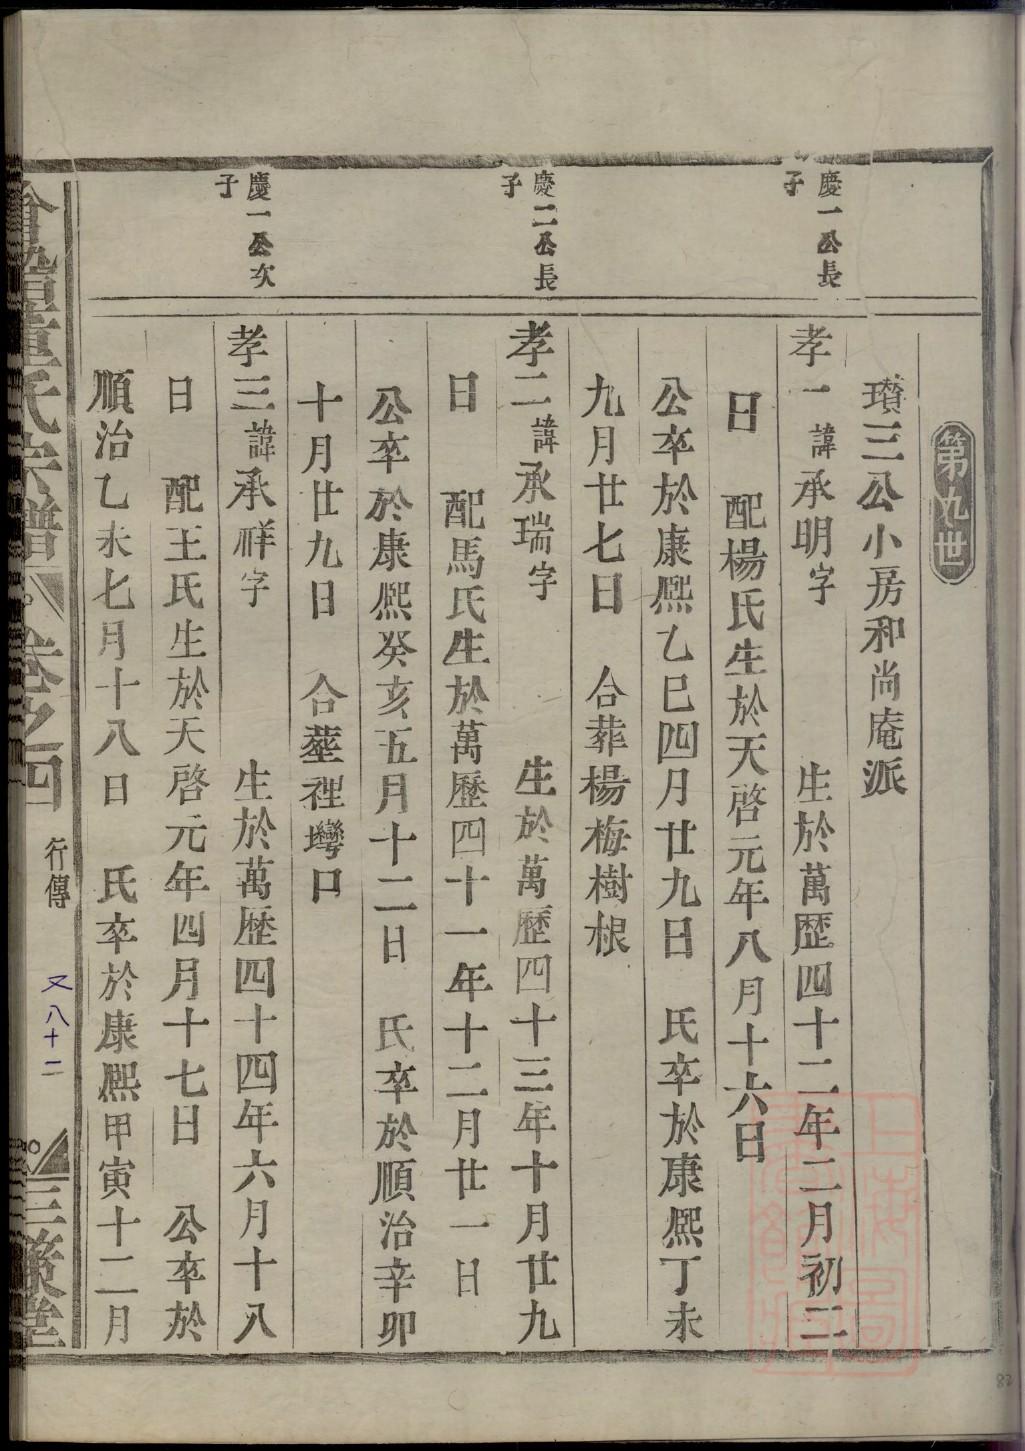 第九世
瓚三公小房和尚庵派
慶一公長
子
孝一諱承明字 生於萬歷四十二年二月初二
日 配楊氏生於天啓元年八月十六日
公卒於康熙乙巳四月廿九日 氏卒於康熙丁未
九月廿七日 合葬楊梅樹根
慶二公長
子
孝二諱承瑞字 生於萬歷四十三年十月廿九
日 配馬氏生於萬歷四十一年十二月廿一日
公卒於康熙癸亥五月十二日 氏卒於順治辛卯
十月廿九日 合塟裡灣口
慶一公次
子
孝三諱承祥字 生於萬歷四十四年六月十八
日 配王氏生於天啓元年四月十七日 公卒於
順治乙未七月十八日 氏卒於康熙甲寅十二月
會稽童氏宗譜 卷之四 行傳 又八十二 三策堂
上海圖書館藏
82